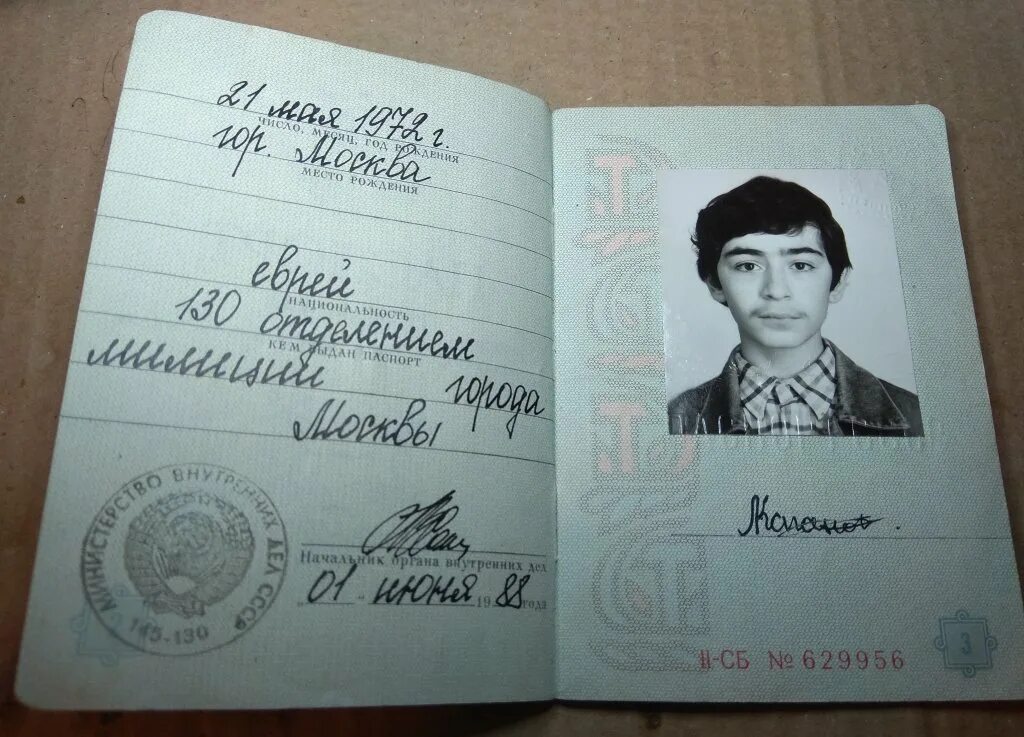 21 мая 1972 г.
ЧИСЛО, МЕСЯЦ, ГОД РОЖДЕНИЯ
гор. Москва
МЕСТО РОЖДЕНИЯ
еврей
НАЦИОНАЛЬНОСТЬ
130 отделением
КЕМ ВЫДАН ПАСПОРТ
милиции города
Москвы
МИНИСТЕРСТВО ВНУТРЕННИХ ДЕЛ СССР
145-130
Начальник органа внутренних дел
"01" июня 1988 года
II-СБ № 629956
3